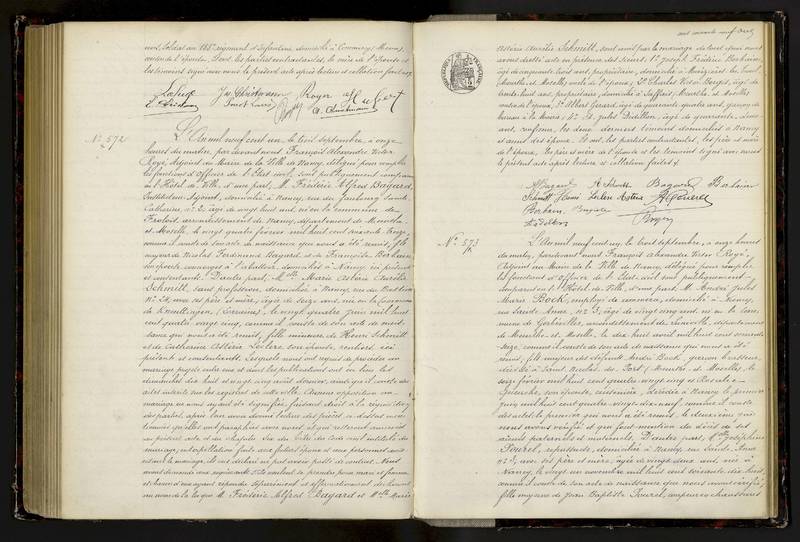 cent soixante neuf
vant, soldat au 155e régiment d'Infanterie, domicilié à Commercy (Meuse),
oncle de l'épouse. Et ont les parties contractantes, et la mère de l'épouse et
les témoins signé avec nous le présent acte après lecture et collation faites.
Royer Hubert
Nº 572
L'An mil neuf cent un, le trois septembre, à onze
heures du matin, par devant nous François Alexandre Victor
Royé, Adjoint au Maire de la Ville de Nancy, délégué pour remplir
les fonctions d'officier de l'Etat civil, sont publiquement comparus
en l'Hôtel de Ville, d'une part, M. Frédéric Alfred Bagard,
Instituteur Adjoint, domicilié à Nancy, rue du faubourg Sainte
Catherine, nº 2, âgé de vingt huit ans, né en la commune de
Frolois, arrondissement de Nancy, département de Meurthe
et Moselle, le vingt quatre février mil huit cent soixante treize,
comme il conste de son acte de naissance qui nous a été remis, fils
majeur de Nicolas Ferdinand Bagard, et de Françoise Borhain,
son épouse, domiciliés à Nancy, ici présents
et consentants. D'autre part, Melle Marie Astérie Aurélie
Schmitt, sans profession, domiciliée à Nancy, rue du Bastion
Nº 24, avec ses père et mère, âgée de seize ans, née en la commune
de (Lorraine), le vingt quatre juin mil huit
cent quatre vingt cinq, comme il conste de son acte de nais-
sance qui nous a été remis, fille mineure de Henri Schmitt
et de Catherine Astérie Leclerc, son épouse, rentiers, ici
présents et consentants. Lesquels nous ont requis de procéder au
mariage projeté entre eux et dont les publications ont eu lieu les
dimanches dix huit et vingt cinq août dernier, ainsi qu'il conste des
actes inscrits sur les registres de cette ville. Aucune opposition au
mariage ne nous ayant été signifiée, faisant droit à la réquisition
des parties, après leur avoir donné lecture des pièces ci-dessus men-
tionnées qu'elles ont paraphées avec nous et qui resteront annexées
au présent acte et du chapitre Six du titre du Code civil intitulé du
mariage, interpellation faite aux futurs époux et aux personnes qui
autorisent le mariage, ils ont déclaré ne pas avoir passé de contrat. Nous
avons demandé aux requérants s'ils veulent se prendre pour mari et femme,
et chacun d'eux ayant répondu séparément et affirmativement, déclarons
au nom de la loi que M. Frédéric Alfred Bagard et Melle Marie
Astérie Aurélie Schmitt, sont unis par le mariage de tout quoi nous
avons dressé acte en présence des sieurs: 1º Joseph Frédéric Borhain,
âgé de cinquante trois ans, propriétaire, domicilié à
(Meurthe et Moselle), oncle de l'époux; 2º Charles Victor Bergé, âgé de
trente huit ans, propriétaire, domicilié à Saffais, (Meurthe et Moselle),
de l'époux; 3º Albert Gérard, âgé de quarante quatre ans, garçon de
bureau à la Mairie; 4º Jules Didillon, âgé de quarante deux
ans, les deux derniers témoins domiciliés à Nancy
et amis des époux. Et ont, les parties contractantes, les père et mère
de l'époux, les père et mère de l'épouse et les témoins signé avec nous
le présent acte après lecture et collation faites.
A. Bagard A. Schmitt Bagard Borhain
Schmitt Henri Leclerc Astérie A. Gérard
Borhain
Royer
Nº 573
L'An mil neuf cent un, le trois septembre, à onze heures
du matin, par devant nous François Alexandre Victor Royé,
Adjoint au Maire de la Ville de Nancy, délégué pour remplir
les fonctions d'Officier de l'Etat civil, sont publiquement
comparus en l'Hôtel de Ville, d'une part, M. André Jules
Marie Bock, employé de commerce, domicilié à Nancy,
rue Sainte Anne, nº 3, âgé de vingt cinq ans, né en la com-
mune de Gerbéviller, arrondissement de Lunéville, département
de Meurthe et Moselle, le dix huit avril mil huit cent soixante
seize, comme il conste de son acte de naissance qui nous a été
remis, fils majeur des défunts André Bock, garçon brasseur,
décédé à Saint Nicolas du Port (Meurthe et Moselle), le
seize février mil huit cent quatre vingt cinq et Rosalie
son épouse, cuisinière, décédée à Nancy le premier
juin mil huit cent quatre vingt dix neuf, comme il conste
des actes, le premier qui nous a été remis, le deuxième que
nous avons vérifié et qui font mention du décès de ses
aïeuls paternels et maternels. D'autre part, Melle Joséphine
Pourel, repasseuse, domiciliée à Nancy, rue Sainte Anne
nº 3, avec ses père et mère, âgée de vingt deux ans, née à
Nancy, le vingt un novembre mil huit cent soixante dix huit,
comme il conste de son acte de naissance que nous avons vérifié,
fille majeure de Jean Baptiste Pourel, coupeur en chaussures